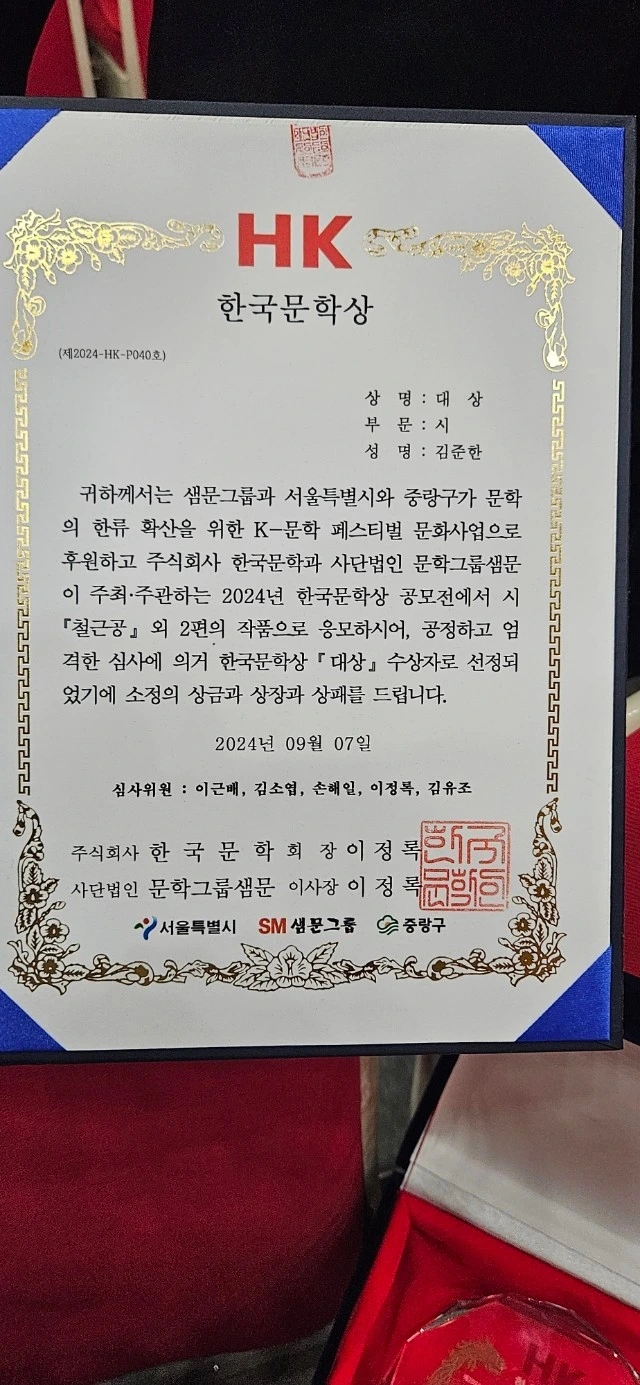 HK
한국문학상
(제2024-HK-P040호)
상 명 : 대 상
부 문 : 시
성 명 : 김준한
귀하께서는 샘문그룹과 서울특별시와 중랑구가 문학
의 한류 확산을 위한 K-문학 페스티벌 문화사업으로
후원하고 주식회사 한국문학과 사단법인 문학그룹샘문
이 주최·주관하는 2024년 한국문학상 공모전에서 시
『철근공』 외 2편의 작품으로 응모하시어, 공정하고 엄
격한 심사에 의거 한국문학상 『대상』 수상자로 선정되
었기에 소정의 상금과 상장과 상패를 드립니다.
2024년 09월 07일
심사위원 : 이근배, 김소엽, 손해일, 이정록, 김유조
주식회사 한 국 문 학 회 장 이 정 록
사단법인 문학그룹샘문 이사장 이 정 록
서울특별시 SM 샘문그룹 중랑구
HK